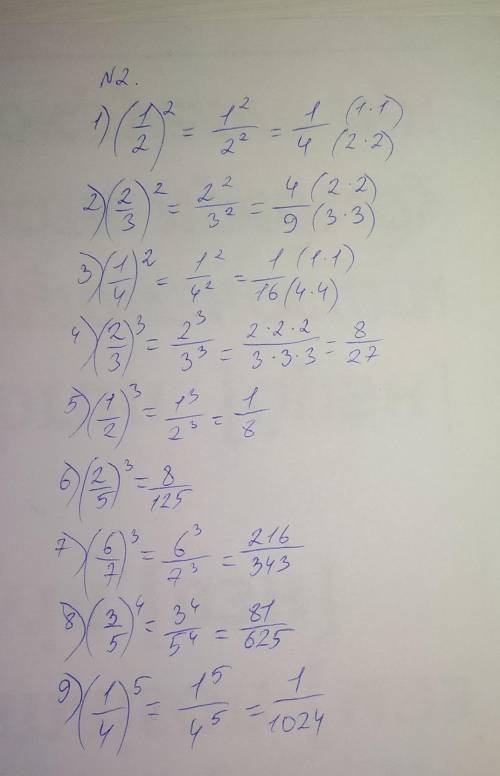 N2.
1) (1/2)² = 1²/2² = 1/4 (1·1) (2·2)
2) (2/3)² = 2²/3² = 4/9 (2·2) (3·3)
3) (1/4)² = 1²/4² = 1/16 (1·1) (4·4)
4) (2/3)³ = 2³/3³ = 2·2·2/3·3·3 = 8/27
5) (1/2)³ = 1³/2³ = 1/8
6) (2/5)³ = 8/125
7) (6/7)³ = 6³/7³ = 216/343
8) (3/5)⁴ = 3⁴/5⁴ = 81/625
9) (1/4)⁵ = 1⁵/4⁵ = 1/1024